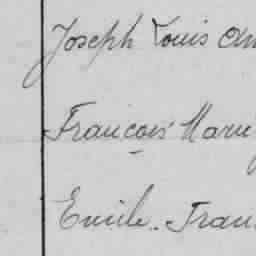 Joseph Louis
François Marie
Emile. Fran